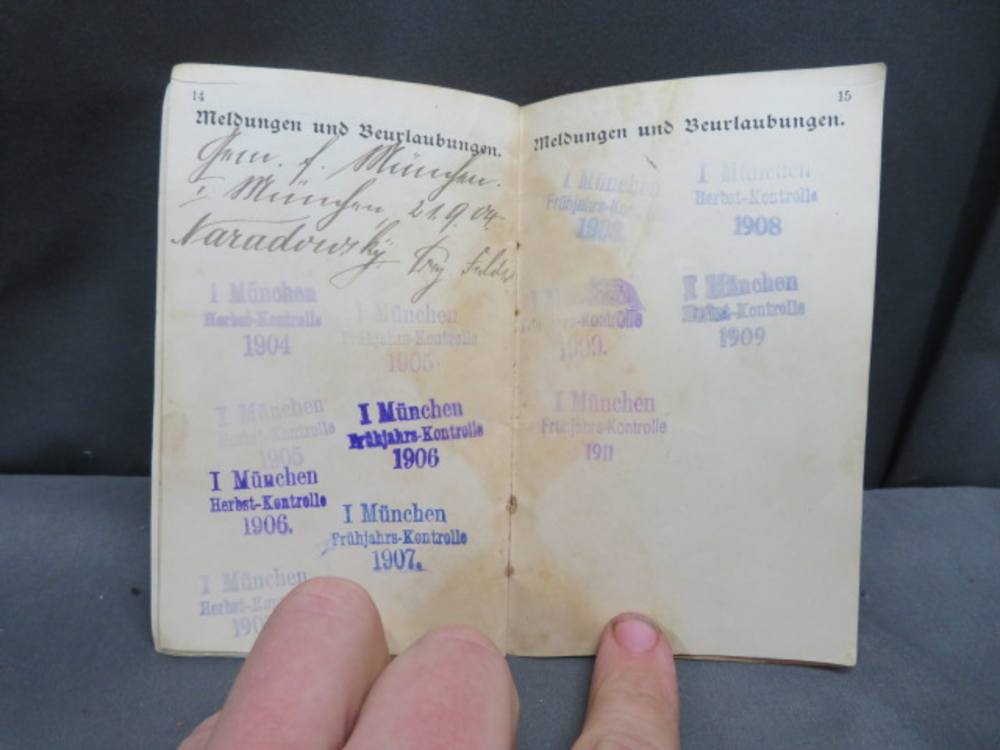 14
Meldungen und Beurlaubungen.
Gem. f. München.
I München, 21.9.04.
Naradowsky
I München
Herbst-Kontrolle
1904
I München
Frühjahrs-Kontrolle
1905
I München
Herbst-Kontrolle
1905
I München
Frühjahrs-Kontrolle
1906
I München
Herbst-Kontrolle
1906.
I München
Frühjahrs-Kontrolle
1907.
I München
15
Meldungen und Beurlaubungen.
I München
I München
Herbst-Kontrolle
1908
-Kontrolle
1909.
I München
-Kontrolle
1909
I München
Frühjahrs-Kontrolle
1911